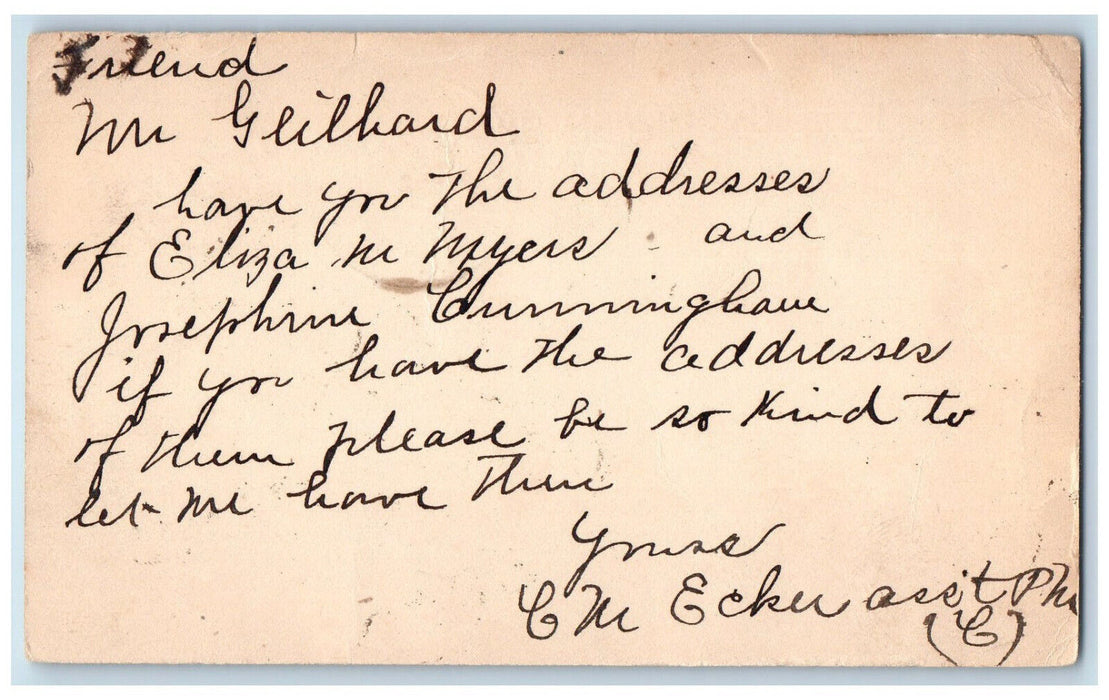 Friend
Mr Geilhard
have you the addresses
of Eliza M Myers and
Josephine Cunningham
if you have the addresses
of them please be so Kind to
let me have them
Yours
C M Ecker ass't PM
(C)